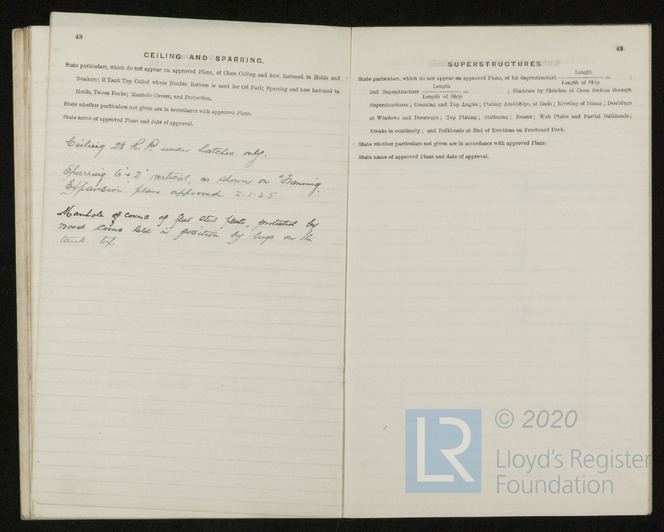 48
CEILING AND SPARRING.
State particulars, which do not appear on approved Plans, of Close Ceiling and how fastened in Holds and
Bunkers; if Tank Top Ceiled where Double Bottom is used for Oil Fuel; Sparring and how fastened in
Holds, Tween Decks; Manhole Covers, and Protection.
State whether particulars not given are in accordance with approved Plans.
State name of approved Plans and date of approval.
Ceiling 2½ P.P. under hatches only.
Sparring 6" x 2" vertical, as shown on "Framing
Expansion" plan approved 2-1-25
Manhole covers of flat steel plate, protected by
wood covers held in position by lugs on the
tank top
49
SUPERSTRUCTURES.
State particulars, which do not appear on approved Plans, of 1st Superstructure Length / Length of Ship = ;
2nd Superstructure Length / Length of Ship = ; Illustrate by Sketches of Cross Section through
Superstructures; Coaming and Top Angles; Plating Amidships, at Ends; Riveting of Seams; Doublings
at Windows and Doorways; Top Plating; Stiffening; Beams; Web Plates and Partial Bulkheads;
Breaks in continuity; and Bulkheads at End of Erections on Freeboard Deck.
State whether particulars not given are in accordance with approved Plans.
State name of approved Plans and date of approval.
LR
© 2020
Lloyd's Register
Foundation